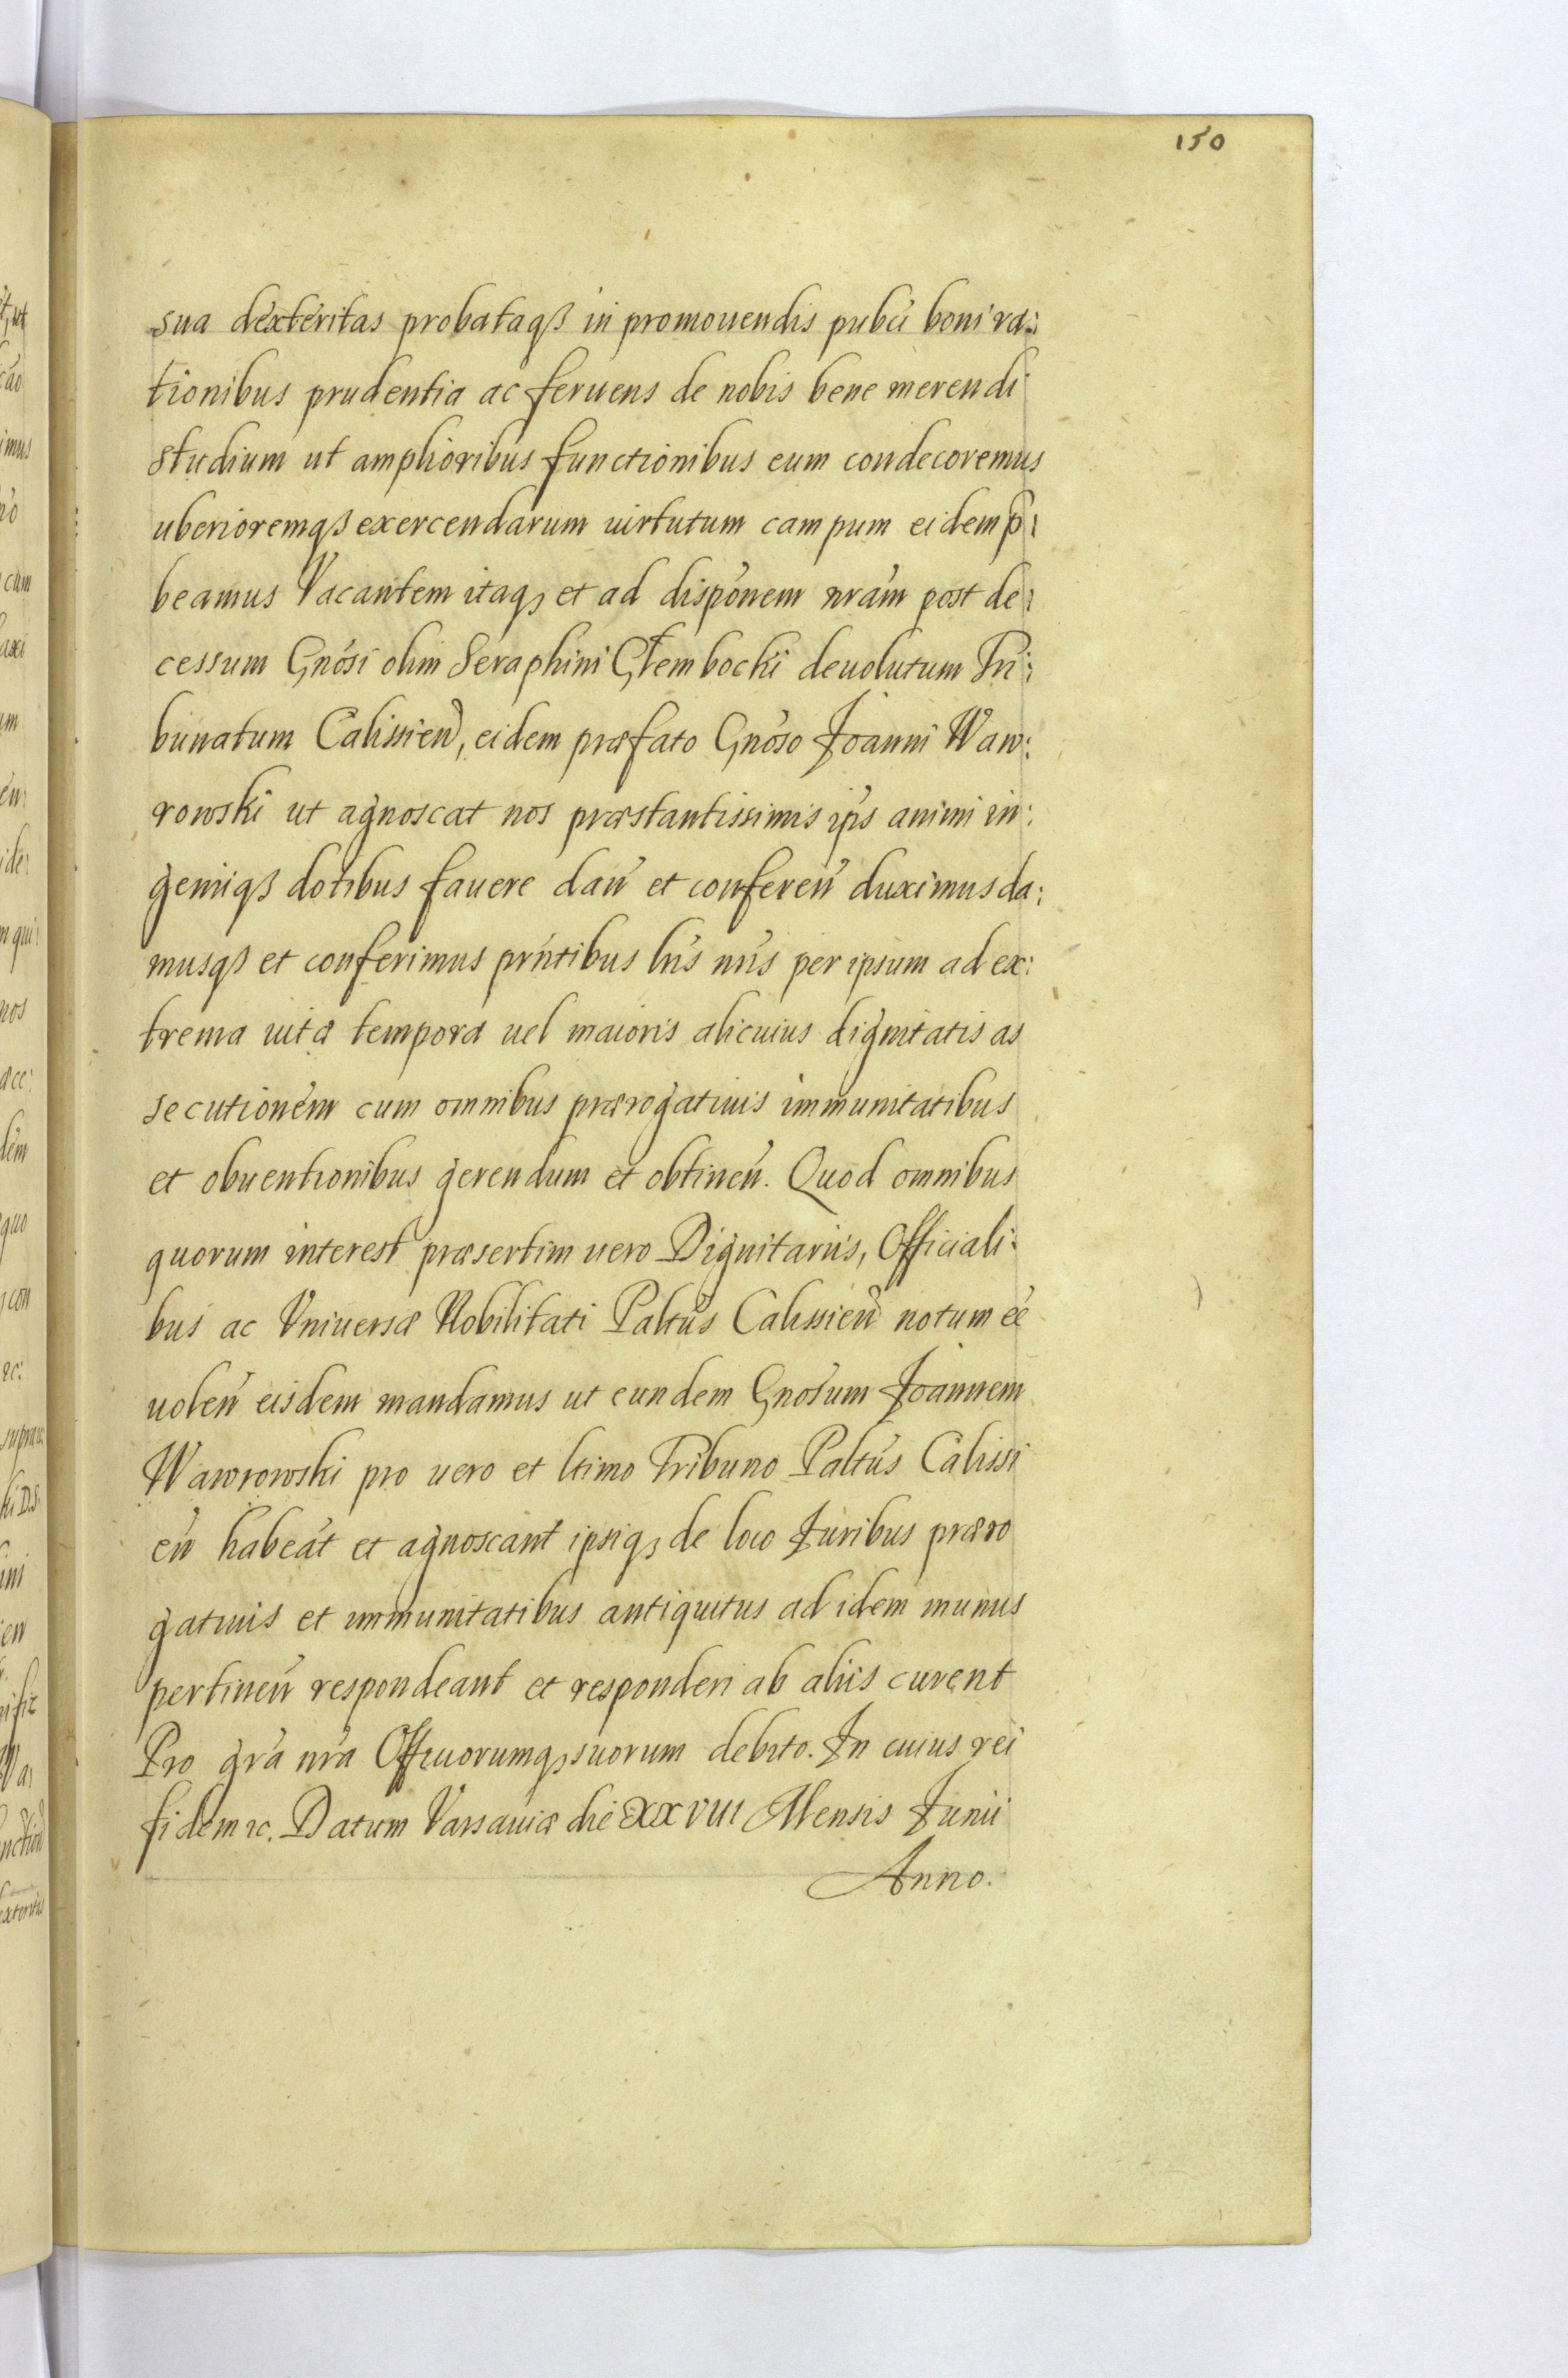 150
sua dexteritas probataqß in promouendis pubci boni ra:
tionibus prudentia ac feruens de nobis bene merendi
studium ut amplioribus functionibus eum condecoremus
uberioremqß exercendarum uirtutum campum eidem p̄:
beamus Vacantem itaqꝫ et ad disponem nram post de:
cessum Gnosi olim Seraphini Głembocki deuolutum Tri:
bunatum Calissien, eidem præfato Gnoso Joanni Waw:
rowski ut agnoscat nos præstantissimis ips animi in:
geniiqß dotibus fauere dan et conferen duximus da:
musqß et conferimus prntibus lris nris per ipsum ad ex:
trema uitæ tempora uel maioris alicuius dignitatis as
secutionem cum omnibus prærogatiuis immunitatibus
et obuentionibus gerendum et obtinen. Quod omnibus
quorum interest præsertim uero Dignitariis, Officiali:
bus ac Vniuersæ Nobilitati Paltus Calissien notum ee
uolen eisdem mandamus ut eundem Gnosum Joannem
Wawrowski pro uero et ltimo Tribuno Paltus Calissi
en habeat et agnoscant ipsiqꝫ de loco Juribus præro
gatiuis et immunitatibus antiquitus ad idem munus
pertinen respondeant et responderi ab aliis curent
Pro gra nra Offiuorumqꝫ suorum debito. In cuius rei
fidem ꝛc. Datum Varsauiæ die XXVIII Mensis Junii
Anno.